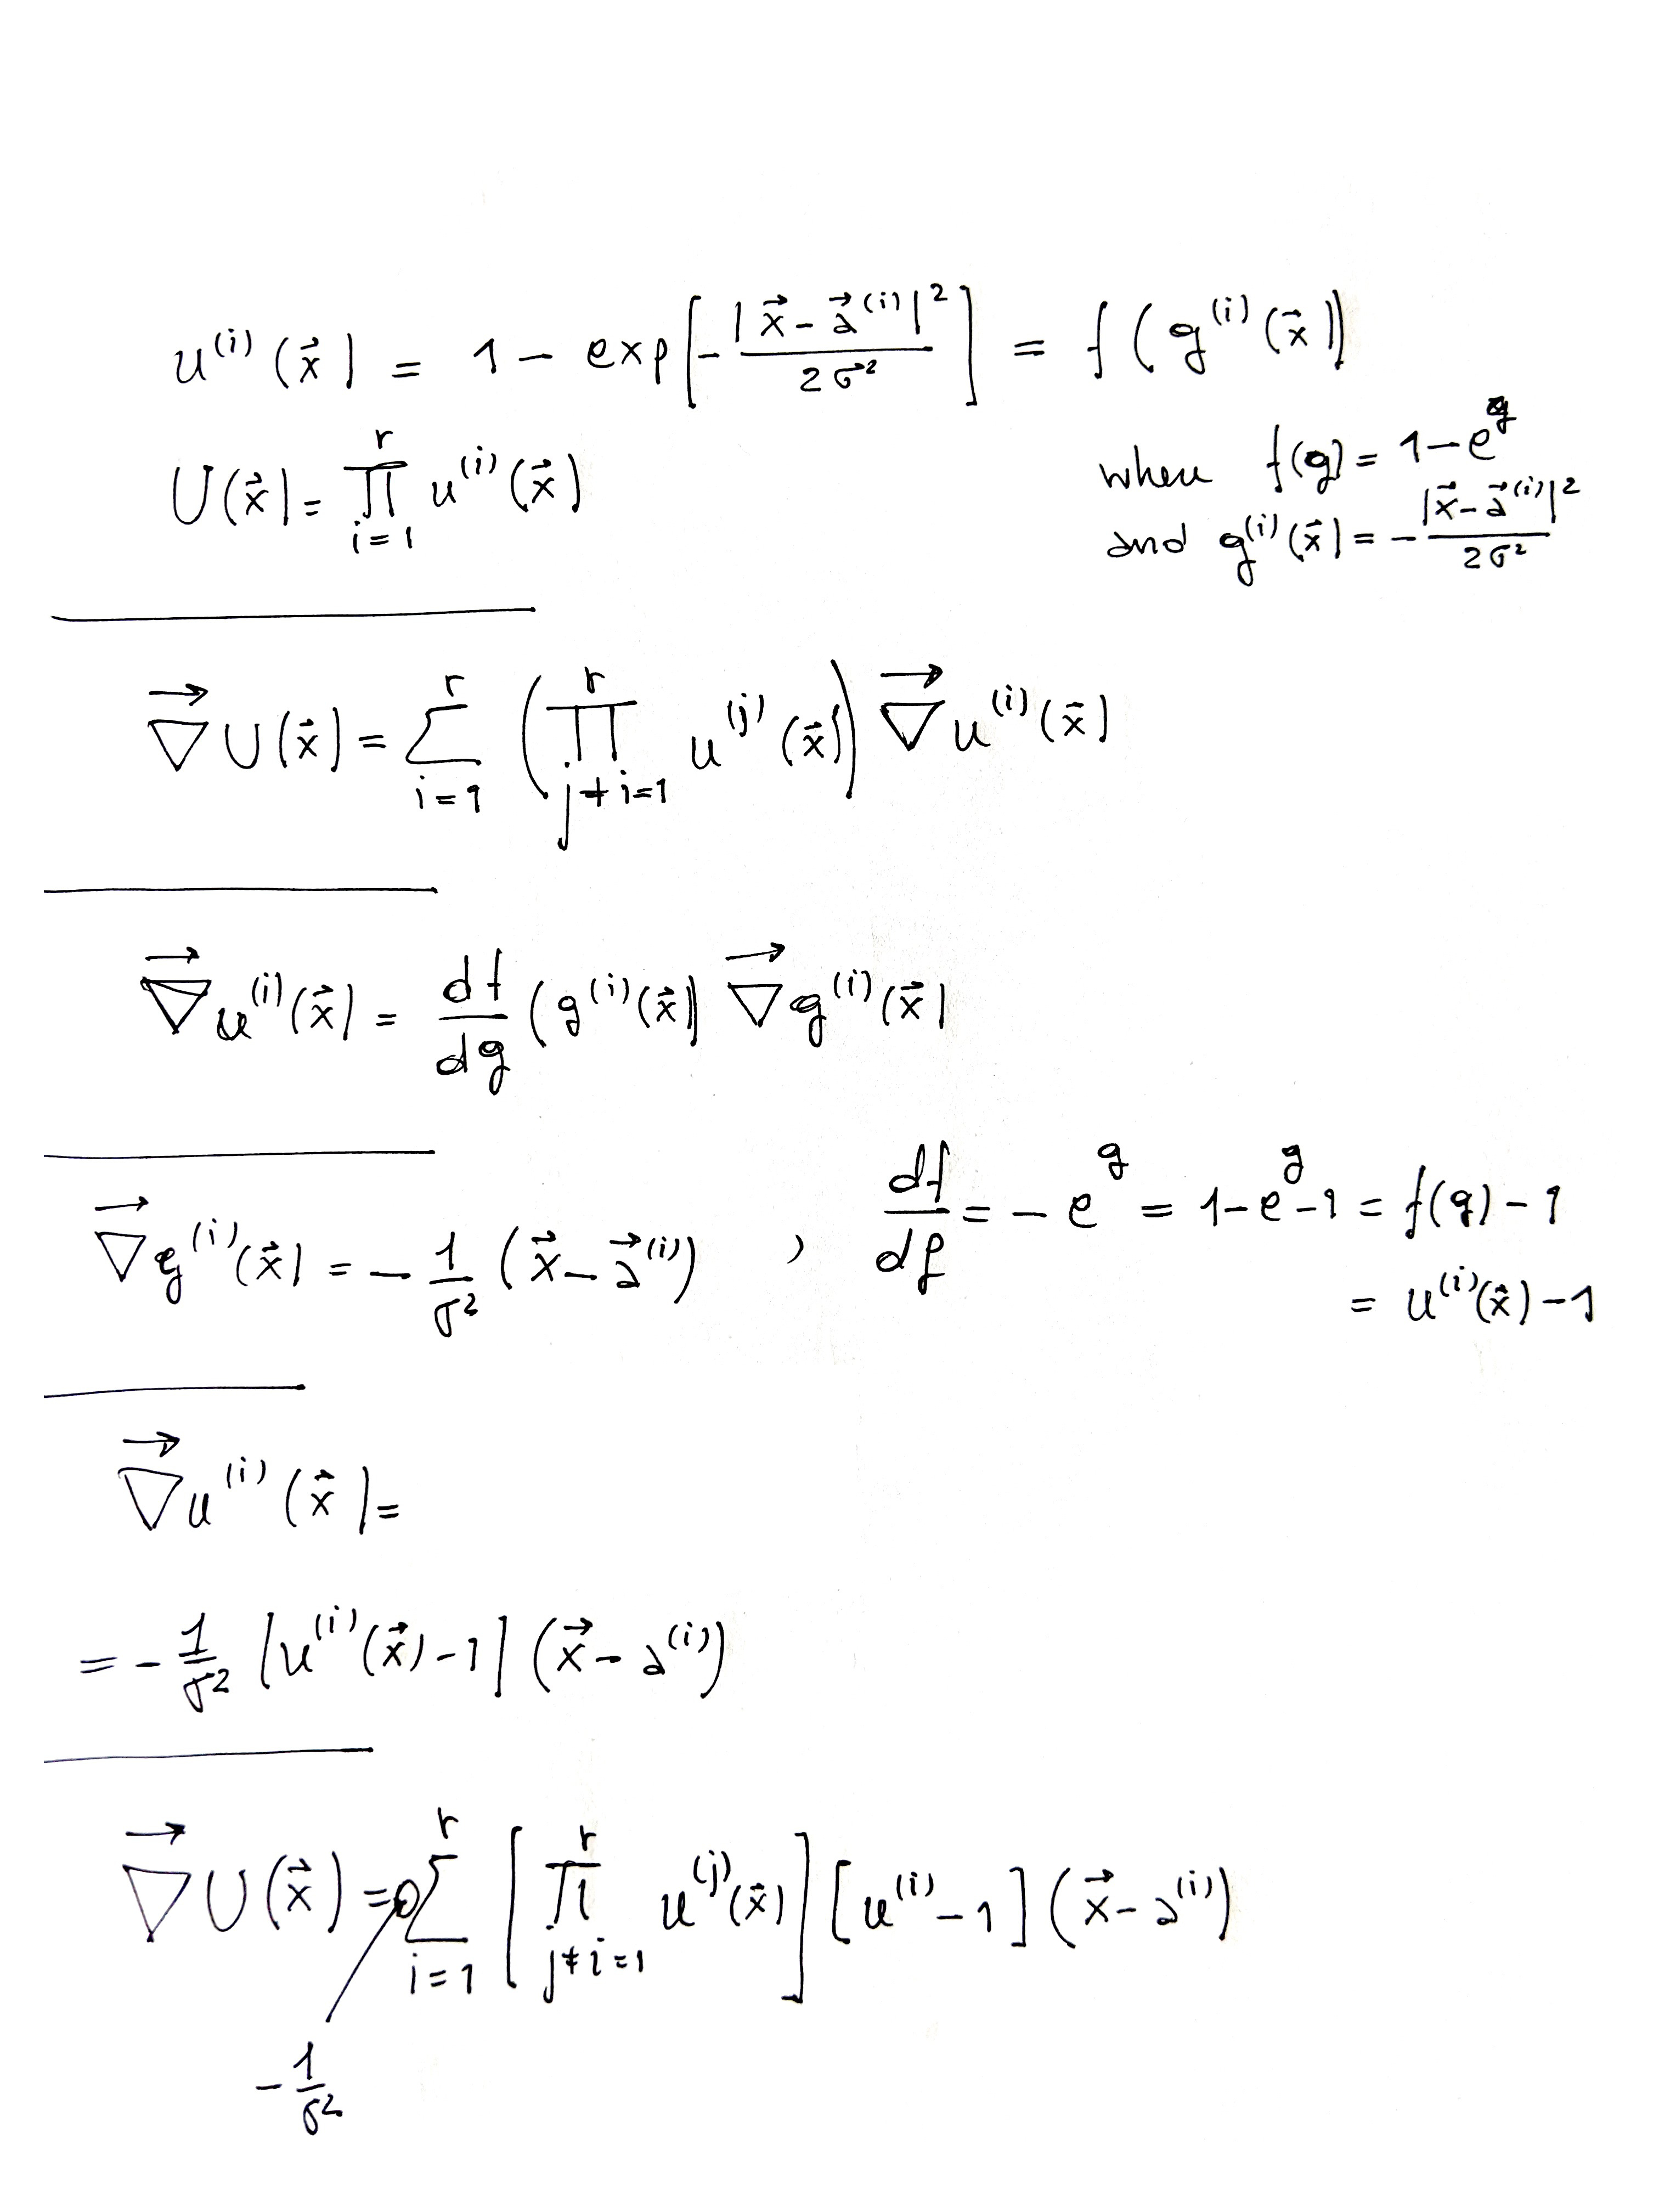 u⁽ⁱ⁾(x⃗) = 1 − exp[− |x⃗ − a⃗⁽ⁱ⁾|² / 2σ²] = f(g⁽ⁱ⁾(x⃗))
U(x⃗) = ∏_{i=1}^{r} u⁽ⁱ⁾(x⃗)
where f(g) = 1 − e^g
and g⁽ⁱ⁾(x⃗) = − |x⃗ − a⃗⁽ⁱ⁾|² / 2σ²
∇⃗U(x⃗) = ∑_{i=1}^{r} (∏_{j≠i=1}^{r} u⁽ʲ⁾(x⃗)) ∇⃗u⁽ⁱ⁾(x⃗)
∇⃗u⁽ⁱ⁾(x⃗) = df/dg (g⁽ⁱ⁾(x⃗)) ∇⃗g⁽ⁱ⁾(x⃗)
∇⃗g⁽ⁱ⁾(x⃗) = − 1/σ² (x⃗ − a⃗⁽ⁱ⁾) , df/dg = − e^g = 1 − e^g − 1 = f(g) − 1
= u⁽ⁱ⁾(x⃗) − 1
∇⃗u⁽ⁱ⁾(x⃗) =
= − 1/σ² [u⁽ⁱ⁾(x⃗) − 1] (x⃗ − a⁽ⁱ⁾)
∇⃗U(x⃗) = ∑_{i=1}^{r} [∏_{j≠i=1}^{r} u⁽ʲ⁾(x⃗)] [u⁽ⁱ⁾ − 1] (x⃗ − a⁽ⁱ⁾)
− 1/σ²